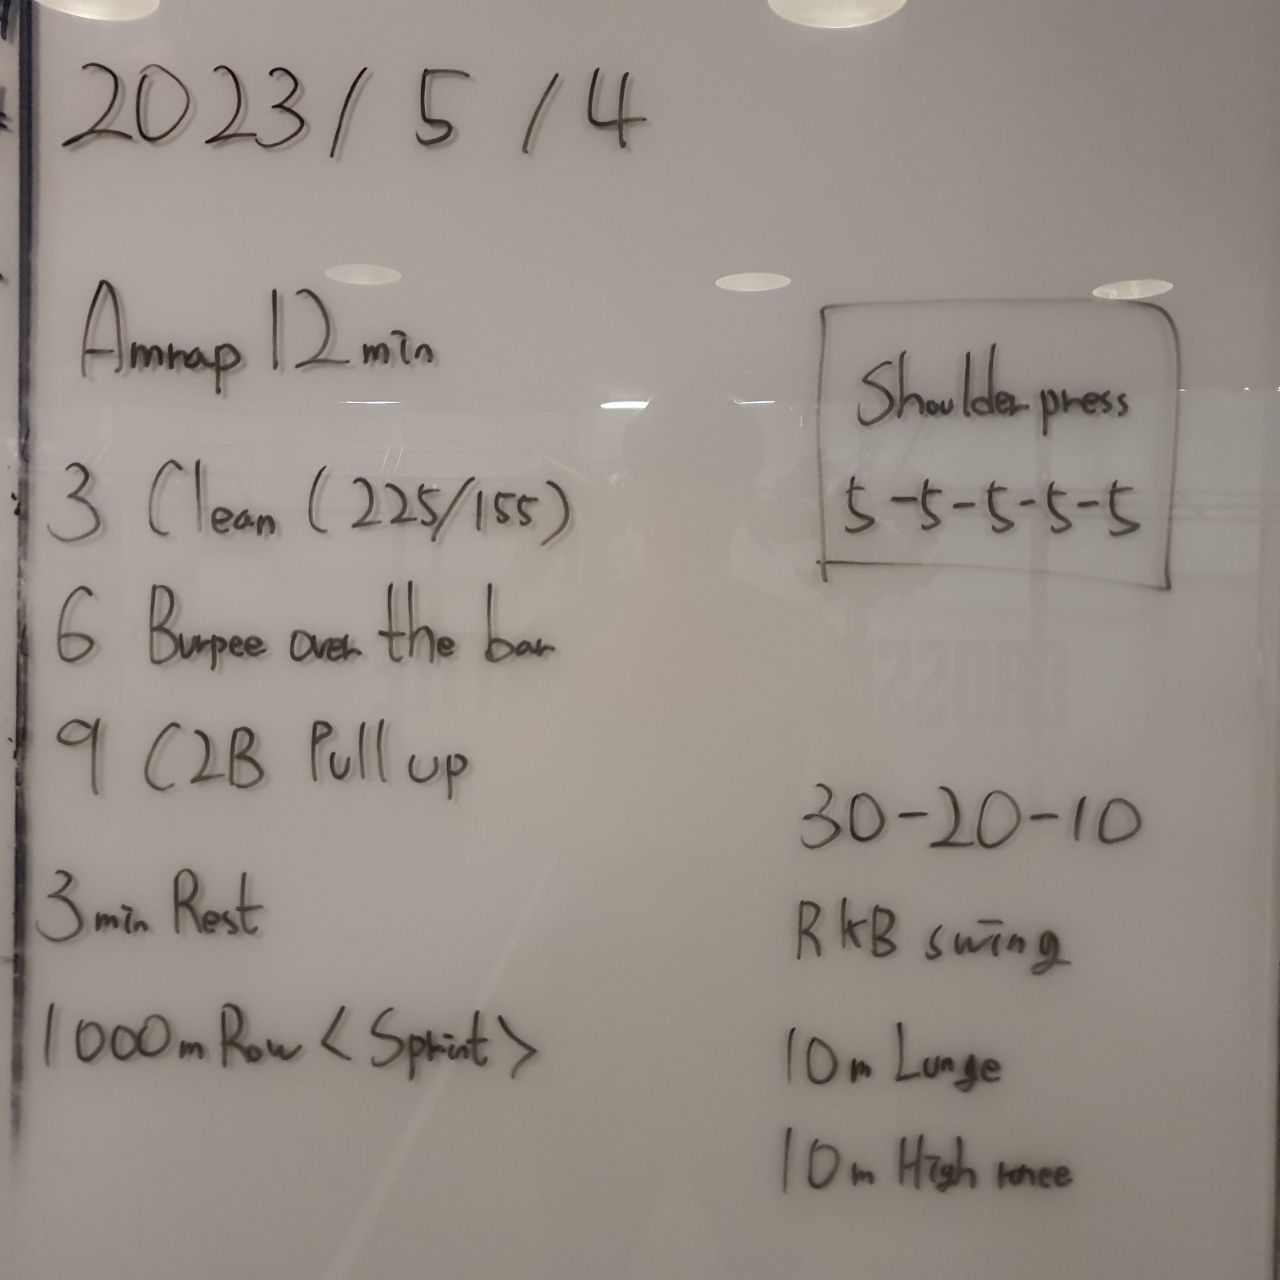 2023/5/4
Amrap 12min
3 Clean (225/155)
6 Burpee over the bar
9 C2B Pull up
3min Rest
1000m Row <Sprint>
Shoulder press
5-5-5-5-5
30-20-10
RKB swing
10m Lunge
10m High knee